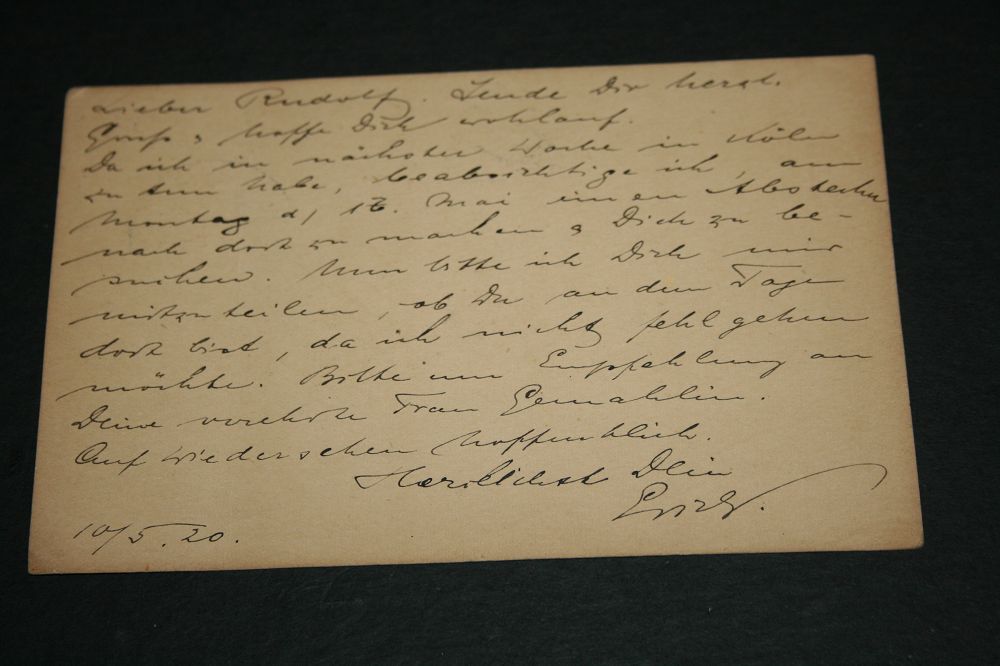 Lieber Rudolf. Sende Dir herzl.
Gruß & hoffe Dich wohlauf.
Da ich in nächster Woche in Köln
zu tun habe, beabsichtige ich, am
Montag d, Mai einen Abstecher
nach dort zu machen & Dich zu be-
suchen. Nun bitte ich Dich mir
mitzuteilen, ob Du an dem Tage
dort bist, da ich nicht fehl gehen
möchte. Bitte um Empfehlung an
Deine verehrte Frau Gemahlin.
Auf Wiedersehen hoffentlich.
Herzlichst Dein
10/5.20.